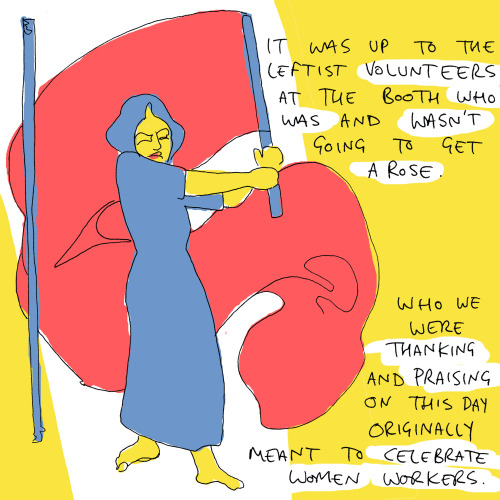 IT WAS UP TO THE
LEFTIST VOLUNTEERS
AT THE BOOTH WHO
WAS AND WASN'T
GOING TO GET
A ROSE.
WHO WE
WERE
THANKING
AND PRAISING
ON THIS DAY
ORIGINALLY
MEANT TO CELEBRATE
WOMEN WORKERS.